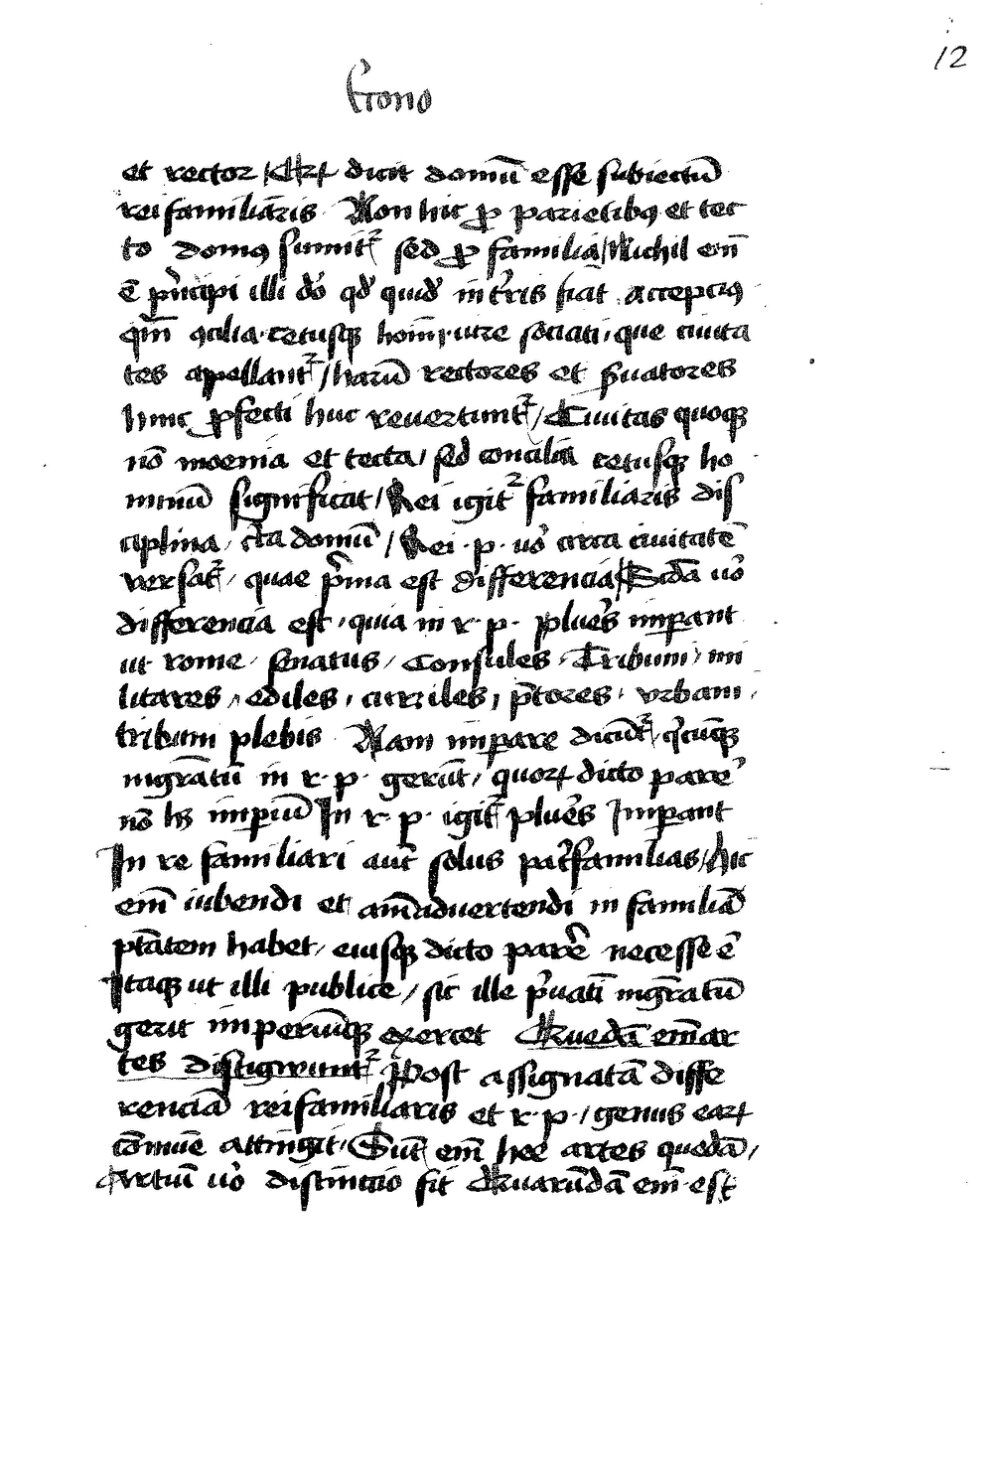 12
et rector / dicit domū esse subiectū
rei familiaris Non hic ꝓ parietibꝯ et tec
to domꝯ sumit᷑ sed ꝓ familia / Nichil em̄
ē pͥncipi illi dō qd̓ quid̓ in tr̄ris fiat acceptiꝯ
qm̄ ꝯcilia cetusqꝫ hoīm iure sociati, que ciuita
tes apellant᷑ / harū rectores et ẜuatores
hinc ꝓfecti huc reuertunt᷑ / Ciuitas quoqꝫ
nō moenia et tecta / sed concilia cetusqꝫ ho
minū significat / Rei igit᷑ familiaris dis
ciplina / cͬca domū / Rei · p · uͦo circa ciuitatē
versat᷑ / quae pͥma est differencia / Scd̄a uͦo
differencia est, quia in r · p · plures imꝑant
ut rome / senatus / Consules / Tribuni mi
litares / ediles / curiles / p̄tores / vrbani /
tribuni plebis Nam imꝑare dicūt᷑ / qͥcūqꝫ
mgr̄atū in r · p · gerūt / quoꝝ dicto parē
nō hꝫ imꝑiū In r · p · igit᷑ plures Imꝑant
In re familiari aut̄ solus patͬfamilias / hic
em̄ iubendi et am̄aduertendi in familiā
ptātem habet / eiusqꝫ dicto parē necesse ē
Itaqꝫ ut illi publice / sic ille pͥuatī mgr̄atū
gerit imperiūqꝫ exercet Quedā em̄ ar
tes distigwunt᷑ Post assignatā diffe
renciā rei familiaris et r · p · / genus eaꝝ
cōmūe attingit / Sūt em̄ hee artes quedā /
Artiū uͦo distinctio fit Quarūdā em̄ est